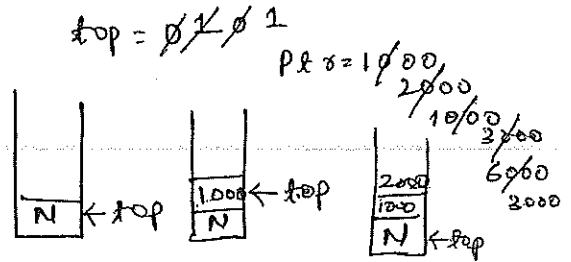 top = 0 1 0 1
Ptr = 1000
2000
1000
3000
6000
3000
N ← top
1000 ← top
N
2000
1000
N ← top